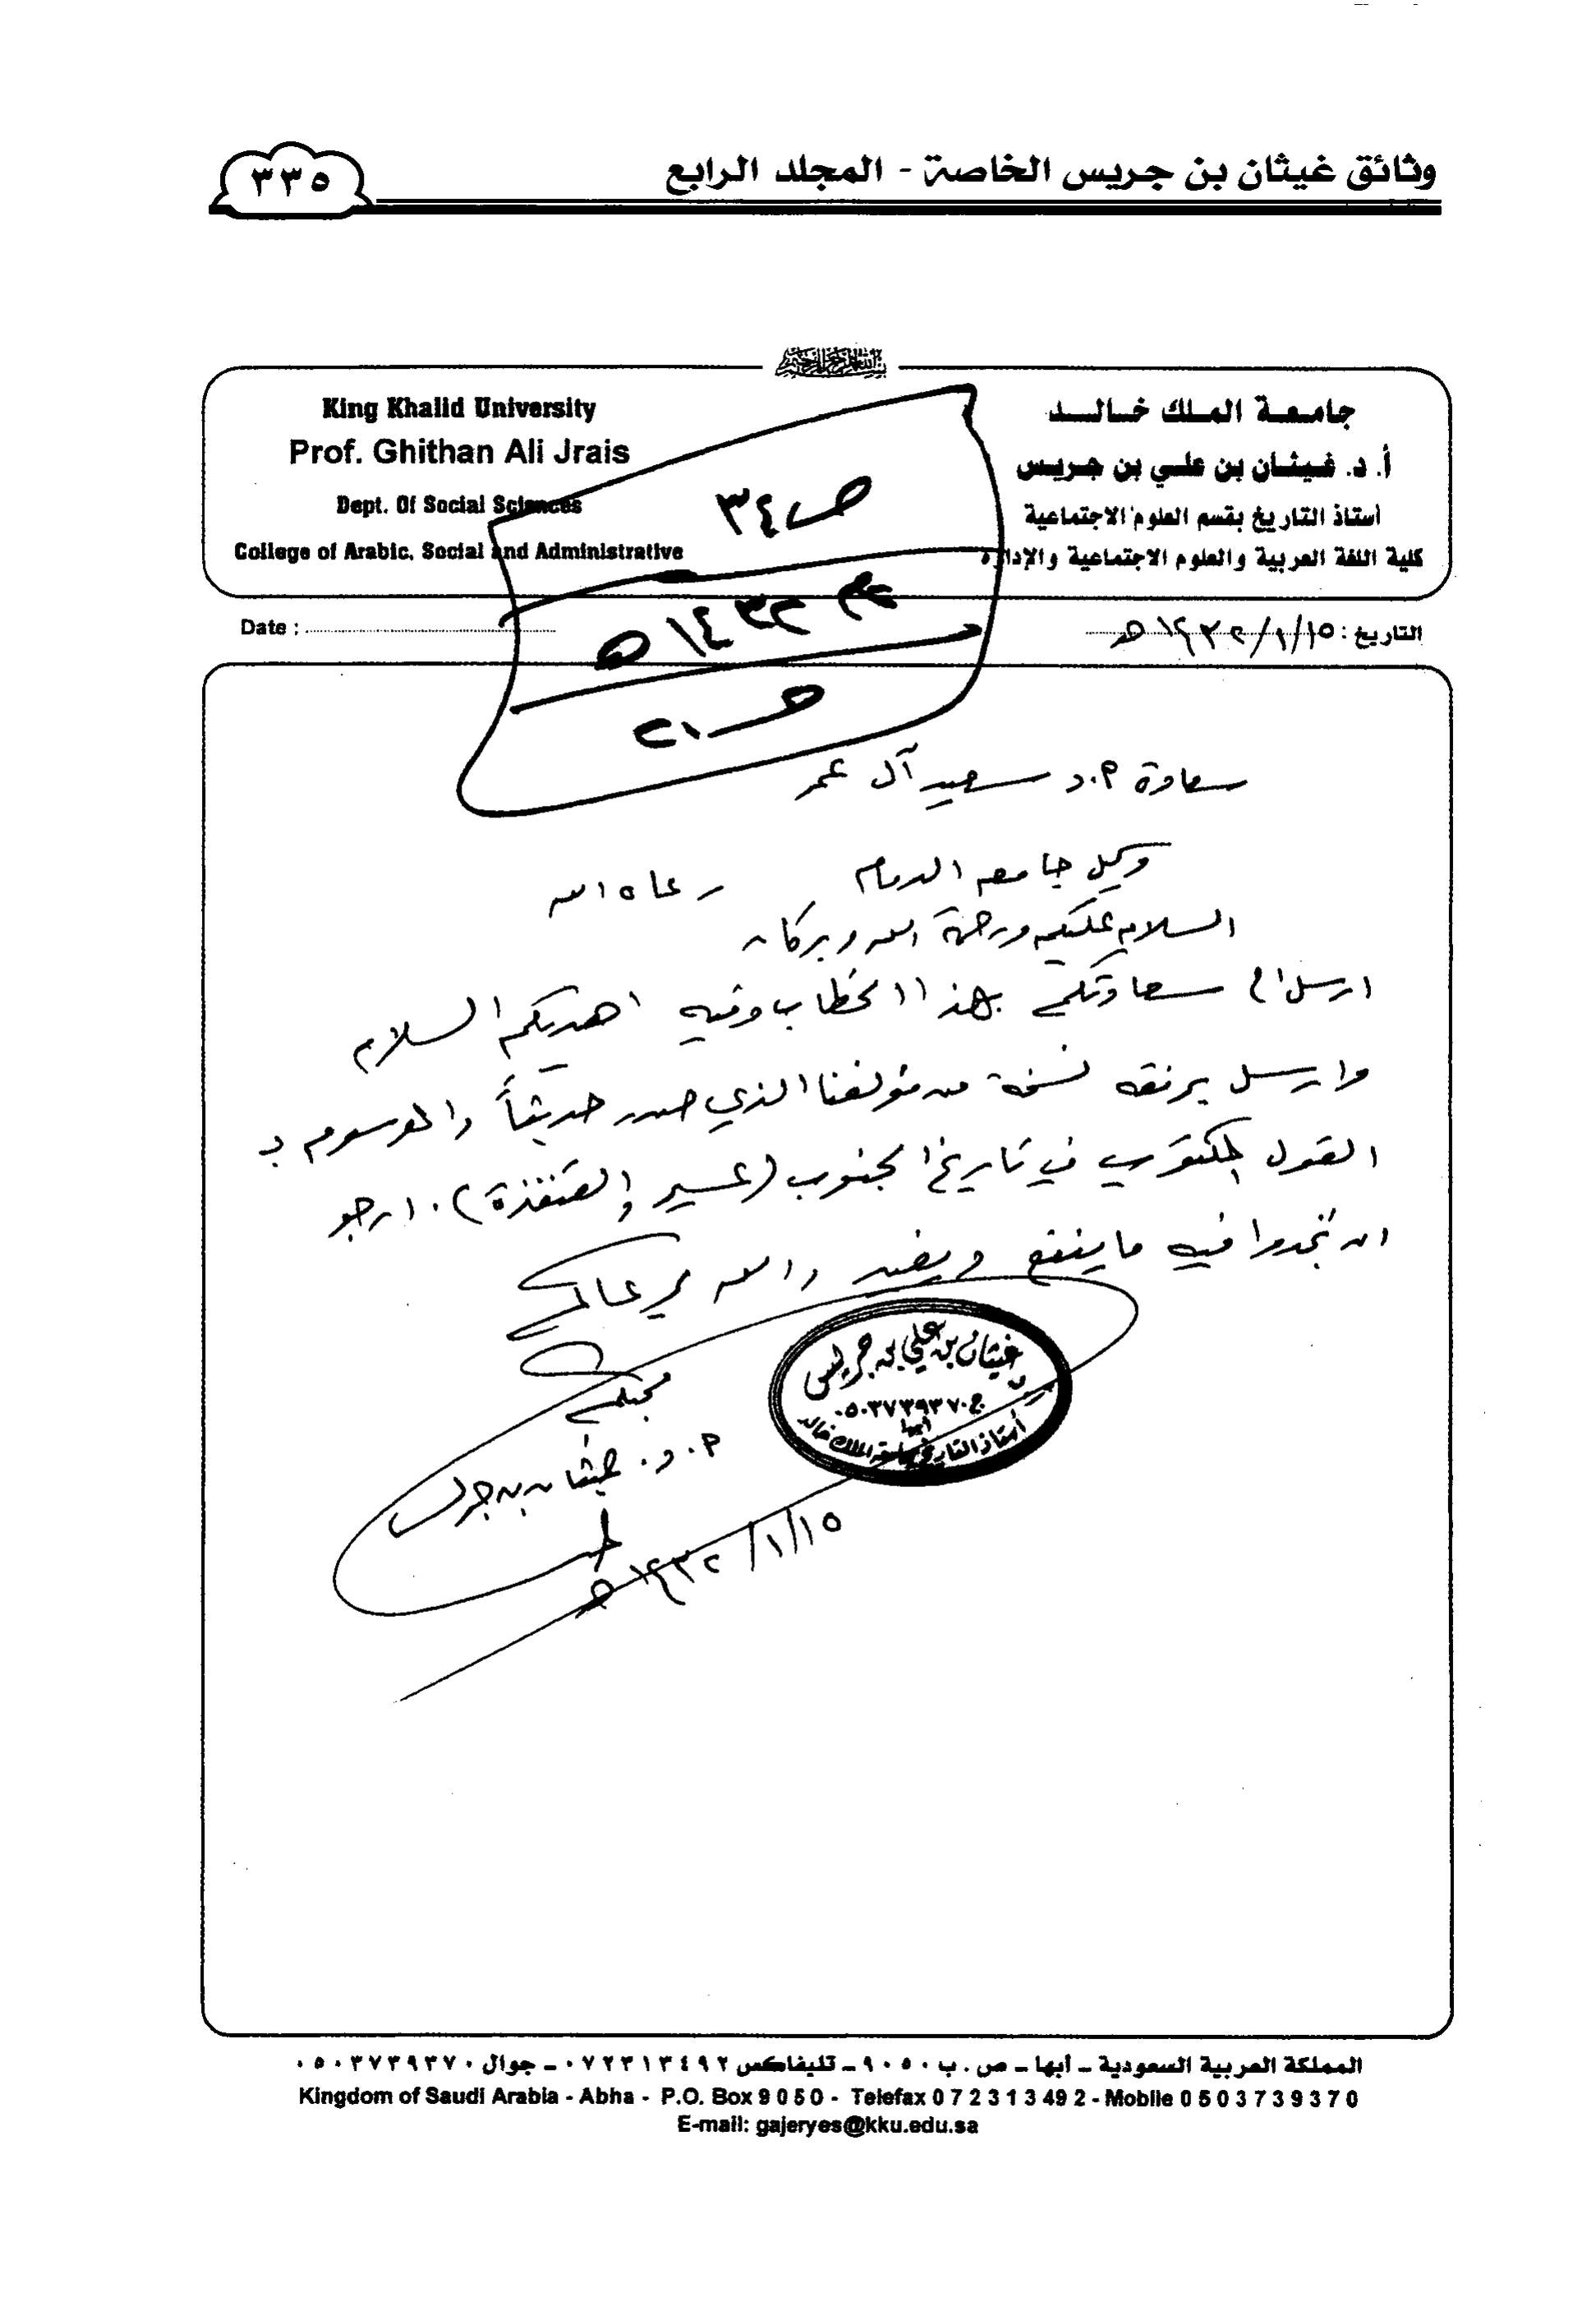 وثائق غيثان بن جريس الخاصة - المجلد الرابع
٣٣٥
بسم الله الرحمن الرحيم
جامعة الملك خالد
أ. د. غيثان بن علي بن جريس
أستاذ التاريخ بقسم العلوم الاجتماعية
كلية اللغة العربية والعلوم الاجتماعية والإدارة
King Khalid University
Prof. Ghithan Ali Jrais
Dept. Of Social Sciences
College of Arabic, Social and Administrative
ص ٣٤
١٤٣٢ هـ
التاريخ : ١٤٣٢/١/١٥ هـ
Date :
سعادة أ.د سعيد آل عمر
وكيل جامعة الدمام رعاه الله
السلام عليكم ورحمة الله وبركاته
ارسل الى سعادتكم بهذا الخطاب وفيه اهديكم السلام
وارسل برفقه نسخة من مؤلفنا الذي صدر حديثاً والموسوم بـ
القول المكتوب في تاريخ الجنوب (عسير والقنفذة). ارجو
ان تجدوا فيه ما ينفع ويفيد والله يرعاكم
محبكم
أ. د. غيثان بن جريس
١٤٣٢/١/١٥ هـ
غيثان بن علي بن جريس
ج ٠٥٠٣٧٣٩٣٧٠
أبها
أستاذ التاريخ بجامعة الملك خالد
المملكة العربية السعودية - أبها - ص . ب ٩٠٥٠ - تليفاكس ٠٧٢٣١٣٤٩٢ - جوال ٠٥٠٣٧٣٩٣٧٠
Kingdom of Saudi Arabia - Abha - P.O. Box 9 0 5 0 - Telefax 0 7 2 3 1 3 49 2 - Mobile 0 5 0 3 7 3 9 3 7 0
E-mail: gajeryes@kku.edu.sa